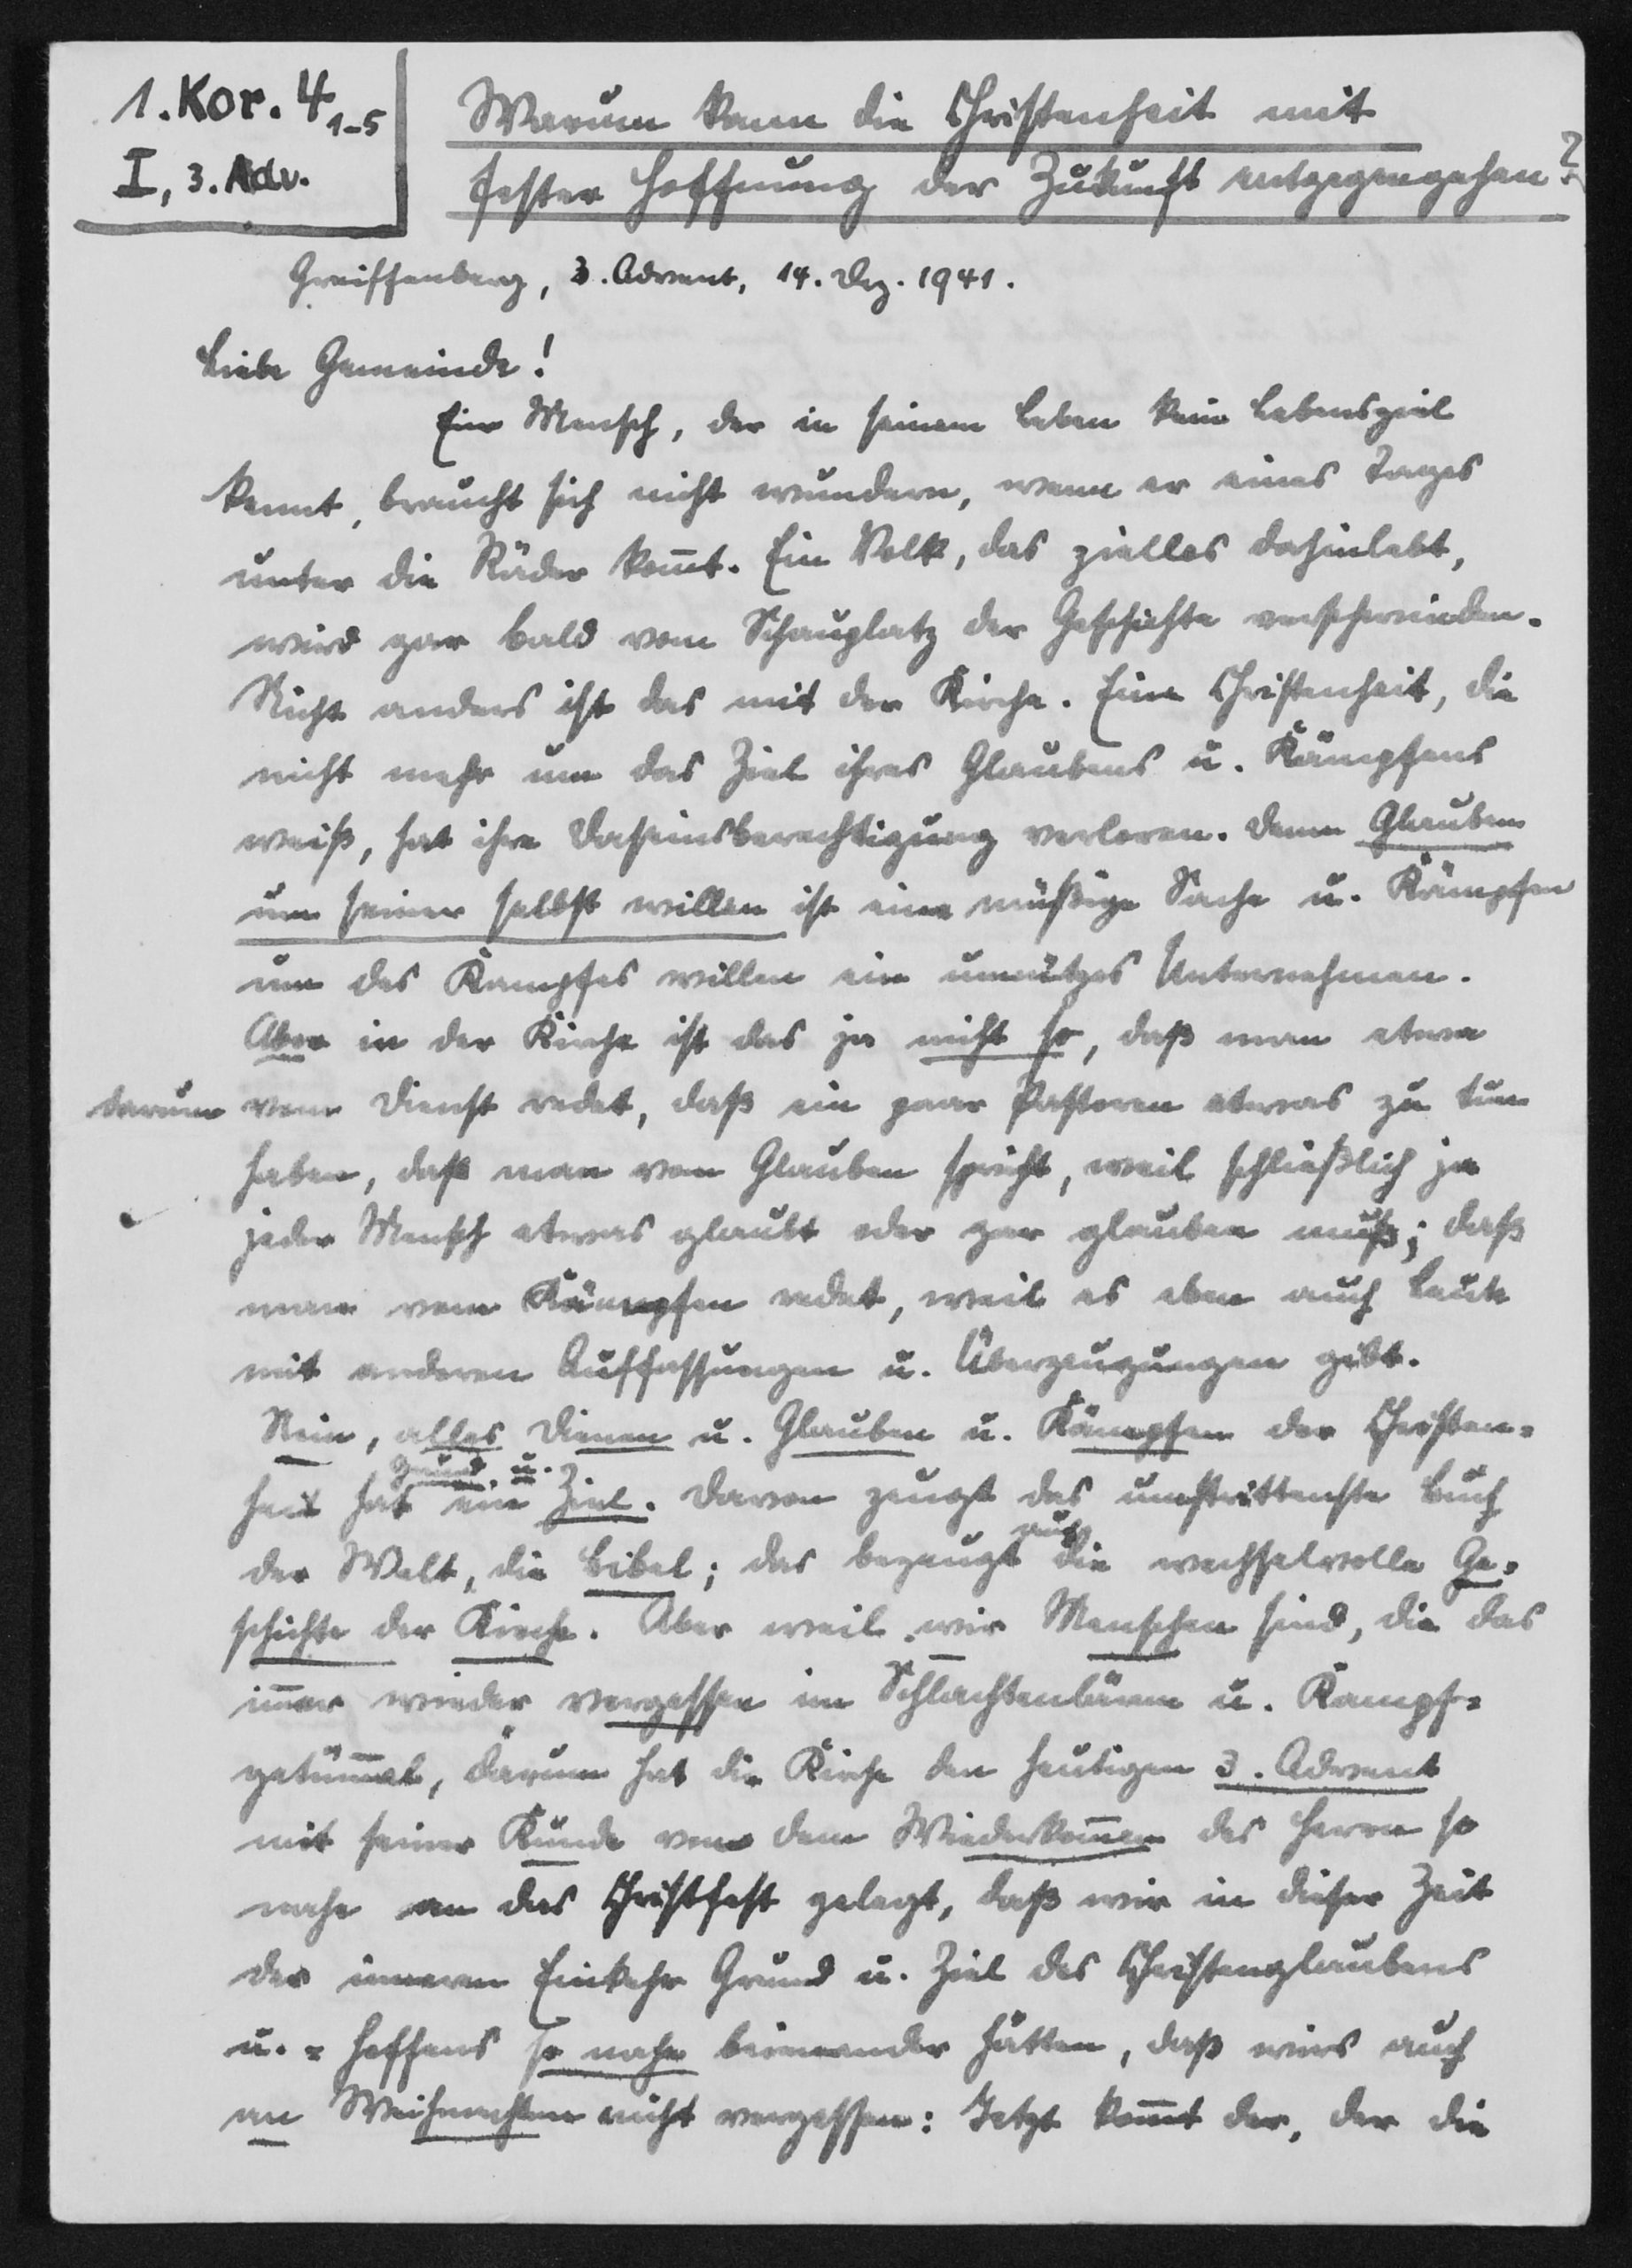 1. Kor. 4 1-5
I, 3. Adv.
Warum kann die Christenheit mit
fester Hoffnung der Zukunft entgegengehen?
Greiffenberg, 3. Advent, 14. Dez. 1941.
Liebe Gemeinde!
Ein Mensch, der in seinem Leben kein Lebensziel
kennt, braucht sich nicht wundern, wenn er eines Tages
unter die Räder kom̅t. Ein Volk, das ziellos dahinlebt,
wird gar bald vom Schauplatz der Geschichte verschwinden.
Nicht anders ist das mit der Kirche. Eine Christenheit, die
nicht mehr um das Ziel ihres Glaubens u. Kämpfens
weiß, hat ihre Daseinsberechtigung verloren. Denn Glauben
um seiner selbst willen ist eine müßige Sache u. Kämpfen
um des Kampfes willen ein unnützes Unternehmen.
Aber in der Kirche ist das ja nicht so, daß man etwa
darum vom Dienst redet, daß ein paar Pastoren etwas zu tun
haben, daß man vom Glauben spricht, weil schließlich ja
jeder Mensch etwas glaubt oder gar glauben muß; daß
man vom Kämpfen redet, weil es eben auch Leute
mit anderen Auffassungen u. Überzeugungen gibt.
Nein, alles Dienen u. Glauben u. Kämpfen der Christen=
heit hat ein Grund u. Ziel. Davon zeugt das umstrittenste Buch
der Welt, die Bibel; das bezeugt auch die wechselvolle Ge=
schichte der Kirche. Aber weil wir Menschen sind, die das
im̅er wieder vergessen im Schlachtenlärm u. Kampf=
getüm̅el, darum hat die Kirche den heutigen 3. Advent
mit seiner Kunde von dem Wiederkom̅en des Herrn so
nahe an das Christfest gelegt, daß wir in dieser Zeit
der inneren Einkehr Grund u. Ziel des Christenglaubens
u. = Hoffens so nahe beieinander hätten, daß wirs auch
an Weihnachten nicht vergessen: Jetzt kom̅t der, der die